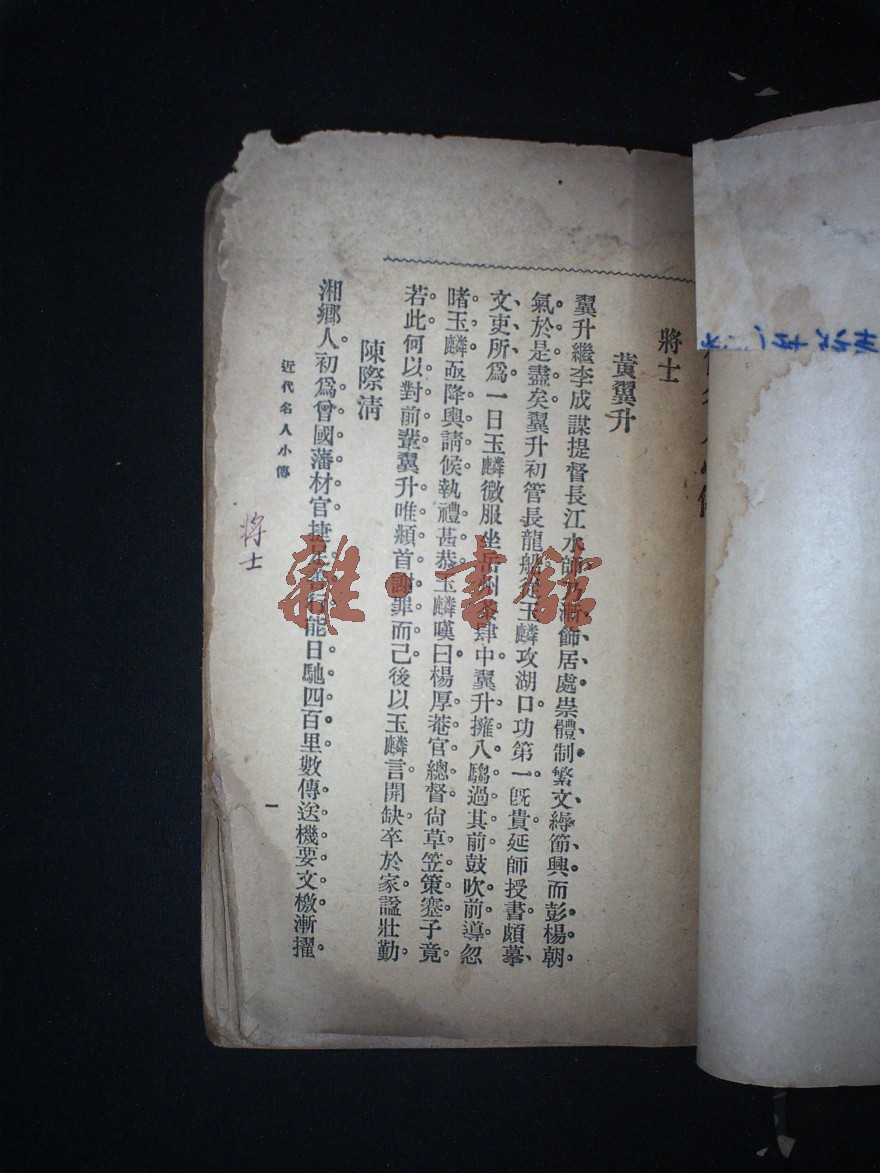 將士
黃翼升
翼升繼李成謀提督長江水師乃漸飾居處崇體制繁文縟節興而彭楊朝
氣於是盡矣翼升初管長龍船從玉麟攻湖口功第一旣貴延師授書頗摹
文吏所爲一日玉麟微服坐岳州茶肆中翼升擁八騶過其前鼓吹前導忽
睹玉麟亟降輿請候執禮甚恭玉麟嘆曰楊厚菴官總督尙草笠策蹇子竟
若此何以對前輩翼升唯頫首謝罪而已後以玉麟言開缺卒於家諡壯勤
陳際淸
湘鄉人初爲曾國藩材官捷足善行能日馳四百里數傳送機要文檄漸擢
近代名人小傳
將士
一
雜·書館